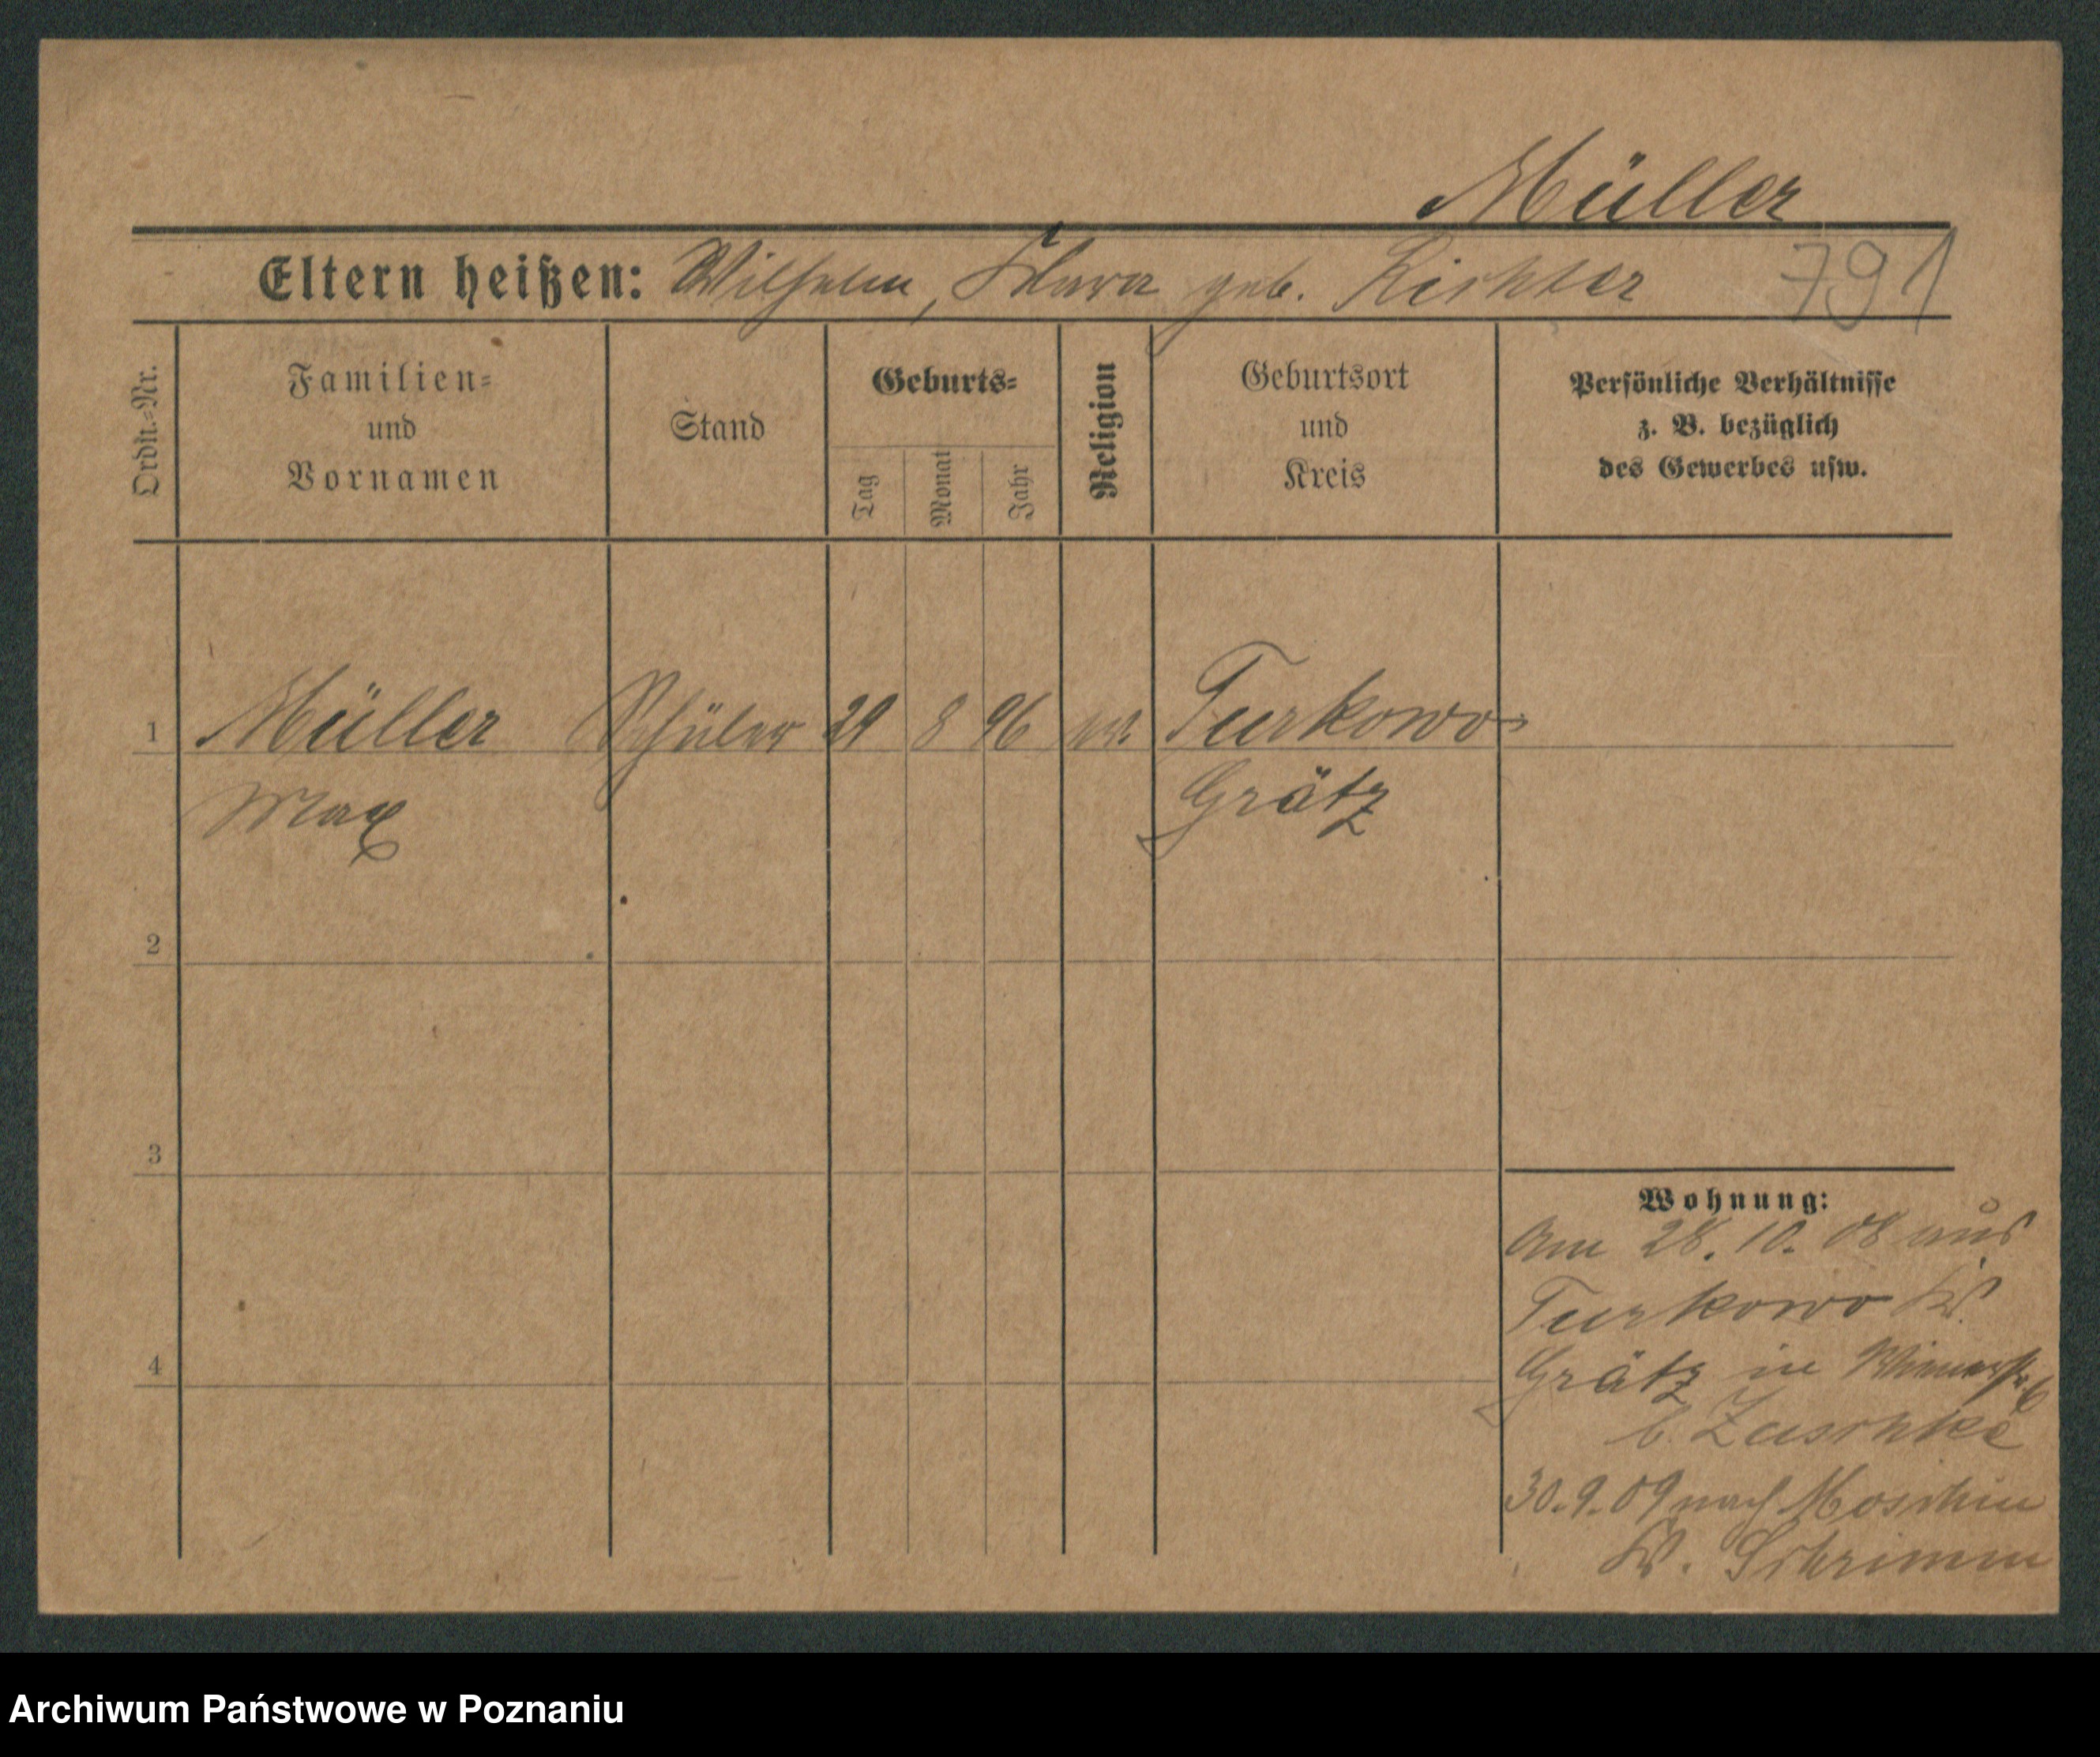 Müller
Eltern heißen: Wilhelm, Klara geb. Richter 791
Ordn.-Nr.
Familien-
und
Vornamen
Stand
Geburts-
Tag
Monat
Jahr
Religion
Geburtsort
und
Kreis
Persönliche Verhältnisse
z. B. bezüglich
des Gewerbes usw.
1 Müller Schüler 29 8 96 ev. Turkowo
Max Grätz
2
3
4
Wohnung:
Am 28. 10. 08 aus
Turkowo Kr.
Grätz in
b. Zuschke
30.9.09 nach Moschin
Kr. Schrimm
Archiwum Państwowe w Poznaniu